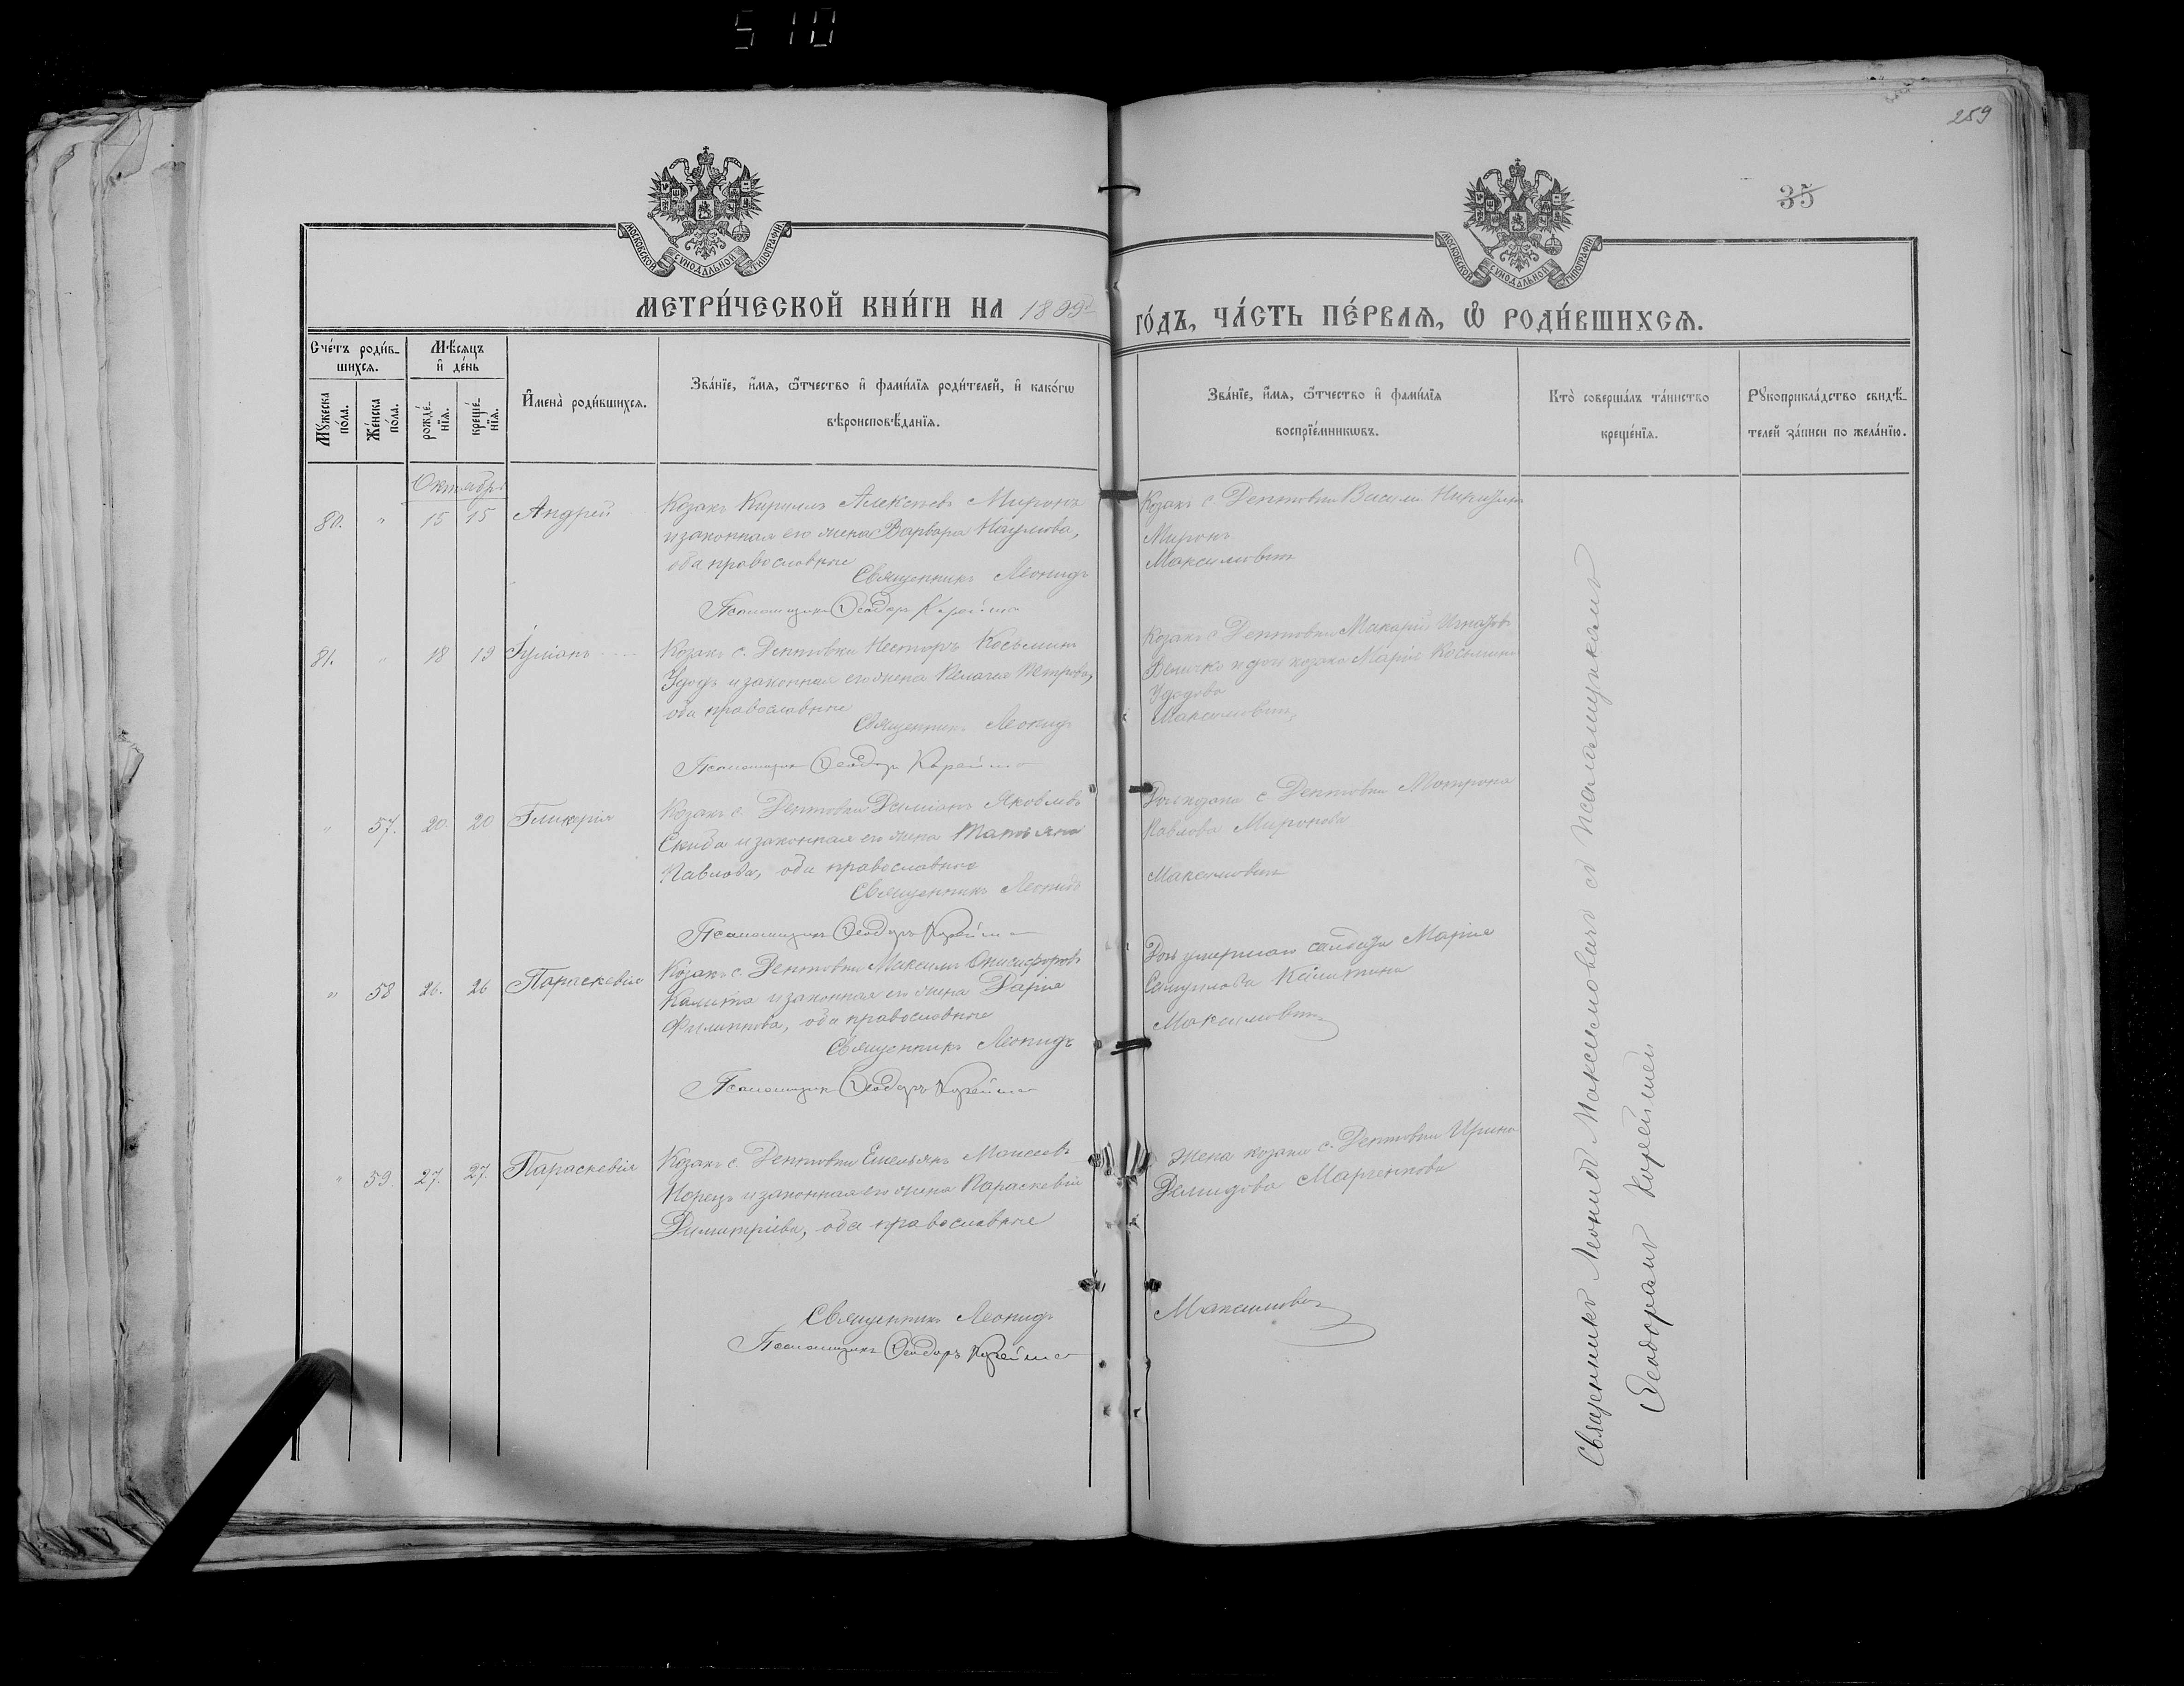 510
259
35
МОСКОВСКОЙ СУНОДАЛЬНОЙ ТИПОГРАФІИ
МОСКОВСКОЙ СУНОДАЛЬНОЙ ТИПОГРАФІИ
МЕТРИ́ЧЕСКОЙ КНИ́ГИ НА 1899
ГО́ДЪ, ЧА́СТЬ ПЕ́РВАѦ, Ѡ҆ РОДИ́ВШИХСѦ.
Сче́тъ роди́в-
шихсѧ.
Мѣ́сѧцъ
и҆ де́нь
Мꙋ́жеска
по́ла.
Же́нска
по́ла.
рожде́-
нїѧ.
креще́-
нїѧ.
И҆мена̀ роди́вшихсѧ.
Зва́нїе, и҆́мѧ, ѻ҆́тчество и҆ фами́лїѧ роди́телей, и҆ како́гѡ
вѣроисповѣ́данїѧ.
Зва́нїе, и҆́мѧ, ѻ҆́тчество и҆ фами́лїѧ
воспрїе́мникѡвъ.
Кто̀ соверша́лъ та́инство
креще́нїѧ.
Рꙋкоприкла́дство свидѣ́-
телей за́писи по жела́нїю.
Октябрь
80. " 15 15 Андрей
Козакъ Кириллъ Алексѣевъ Миронъ
и законная его жена Варвара Наумова,
оба православные
Священникъ Леонидъ
Псаломщикъ Ѳеодоръ Корейша
Козакъ с. Дептовки
Миронъ
Максимовичъ
81. " 18 19 Іуліанъ
Козакъ с. Дептовки Несторъ Косьминъ
Удодъ и законная его жена Пелагея Петрова,
оба православные
Священникъ Леонидъ
Псаломщикъ Ѳеодоръ Корейша
Козакъ с. Дептовки Макарій
Величко и козака Марія Косьмина
Удодова
Максимовичъ
" 57. 20. 20 Гликерія
Козакъ с. Дептовки Даміанъ Яковлевъ
Скида и законная его жена Татьяна
Павлова, оба православные
Священникъ Леонидъ
Псаломщикъ Ѳеодоръ Корейша
Дочь козака с. Дептовки Мотрона
Павлова Миронова
Максимовичъ
" 58 26. 26 Параскевія
Козакъ с. Дептовки Максимъ Онисифоровъ
Калита и законная его жена Дарія
Филиппова, оба православные
Священникъ Леонидъ
Псаломщикъ Ѳеодоръ Корейша
Дочь умершаго солдата Марія
Самуилова Калитина
Максимовичъ
" 59. 27. 27. Параскевія
Козакъ с. Дептовки Емельянъ Моисеевъ
и законная его жена Параскевія
Димитріева, оба православные
Священникъ Леонидъ
Псаломщикъ Ѳеодоръ Корейша
Жена козака с. Дептовки Ирина
Демидова Марченкова
Максимовичъ
Священникъ Леонидъ Максимовичъ съ псаломщикомъ
Ѳеодоромъ Корейшею